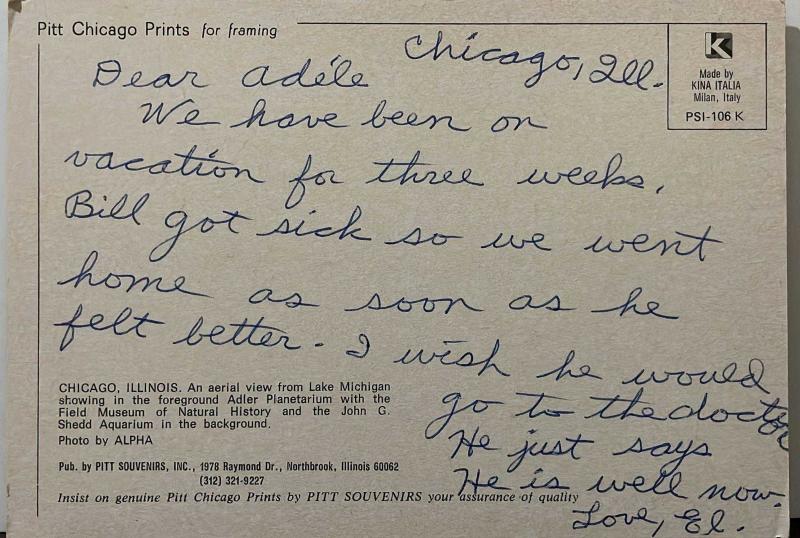 Pitt Chicago Prints for framing
Chicago, Ill.
K
Made by
KINA ITALIA
Milan, Italy
PSI-106 K
Dear Adéle
We have been on
vacation for three weeks.
Bill got sick so we went
home as soon as he
felt better. I wish he would
go to the doctor
He just says
He is well now.
Love, El.
CHICAGO, ILLINOIS. An aerial view from Lake Michigan
showing in the foreground Adler Planetarium with the
Field Museum of Natural History and the John G.
Shedd Aquarium in the background.
Photo by ALPHA
Pub. by PITT SOUVENIRS, INC., 1978 Raymond Dr., Northbrook, Illinois 60062
(312) 321-9227
Insist on genuine Pitt Chicago Prints by PITT SOUVENIRS your assurance of quality